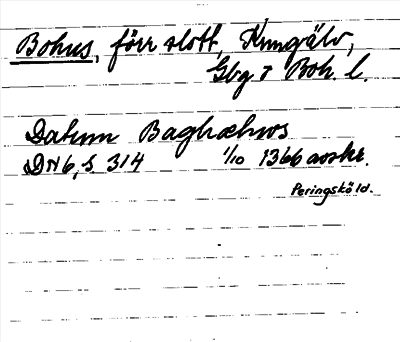 Bohus, förr slott, Kungälv,
Gbg o Boh. l.
Datum Baghæhws
DN 6, s 314 1/10 1366 avskr.
Peringsköld.